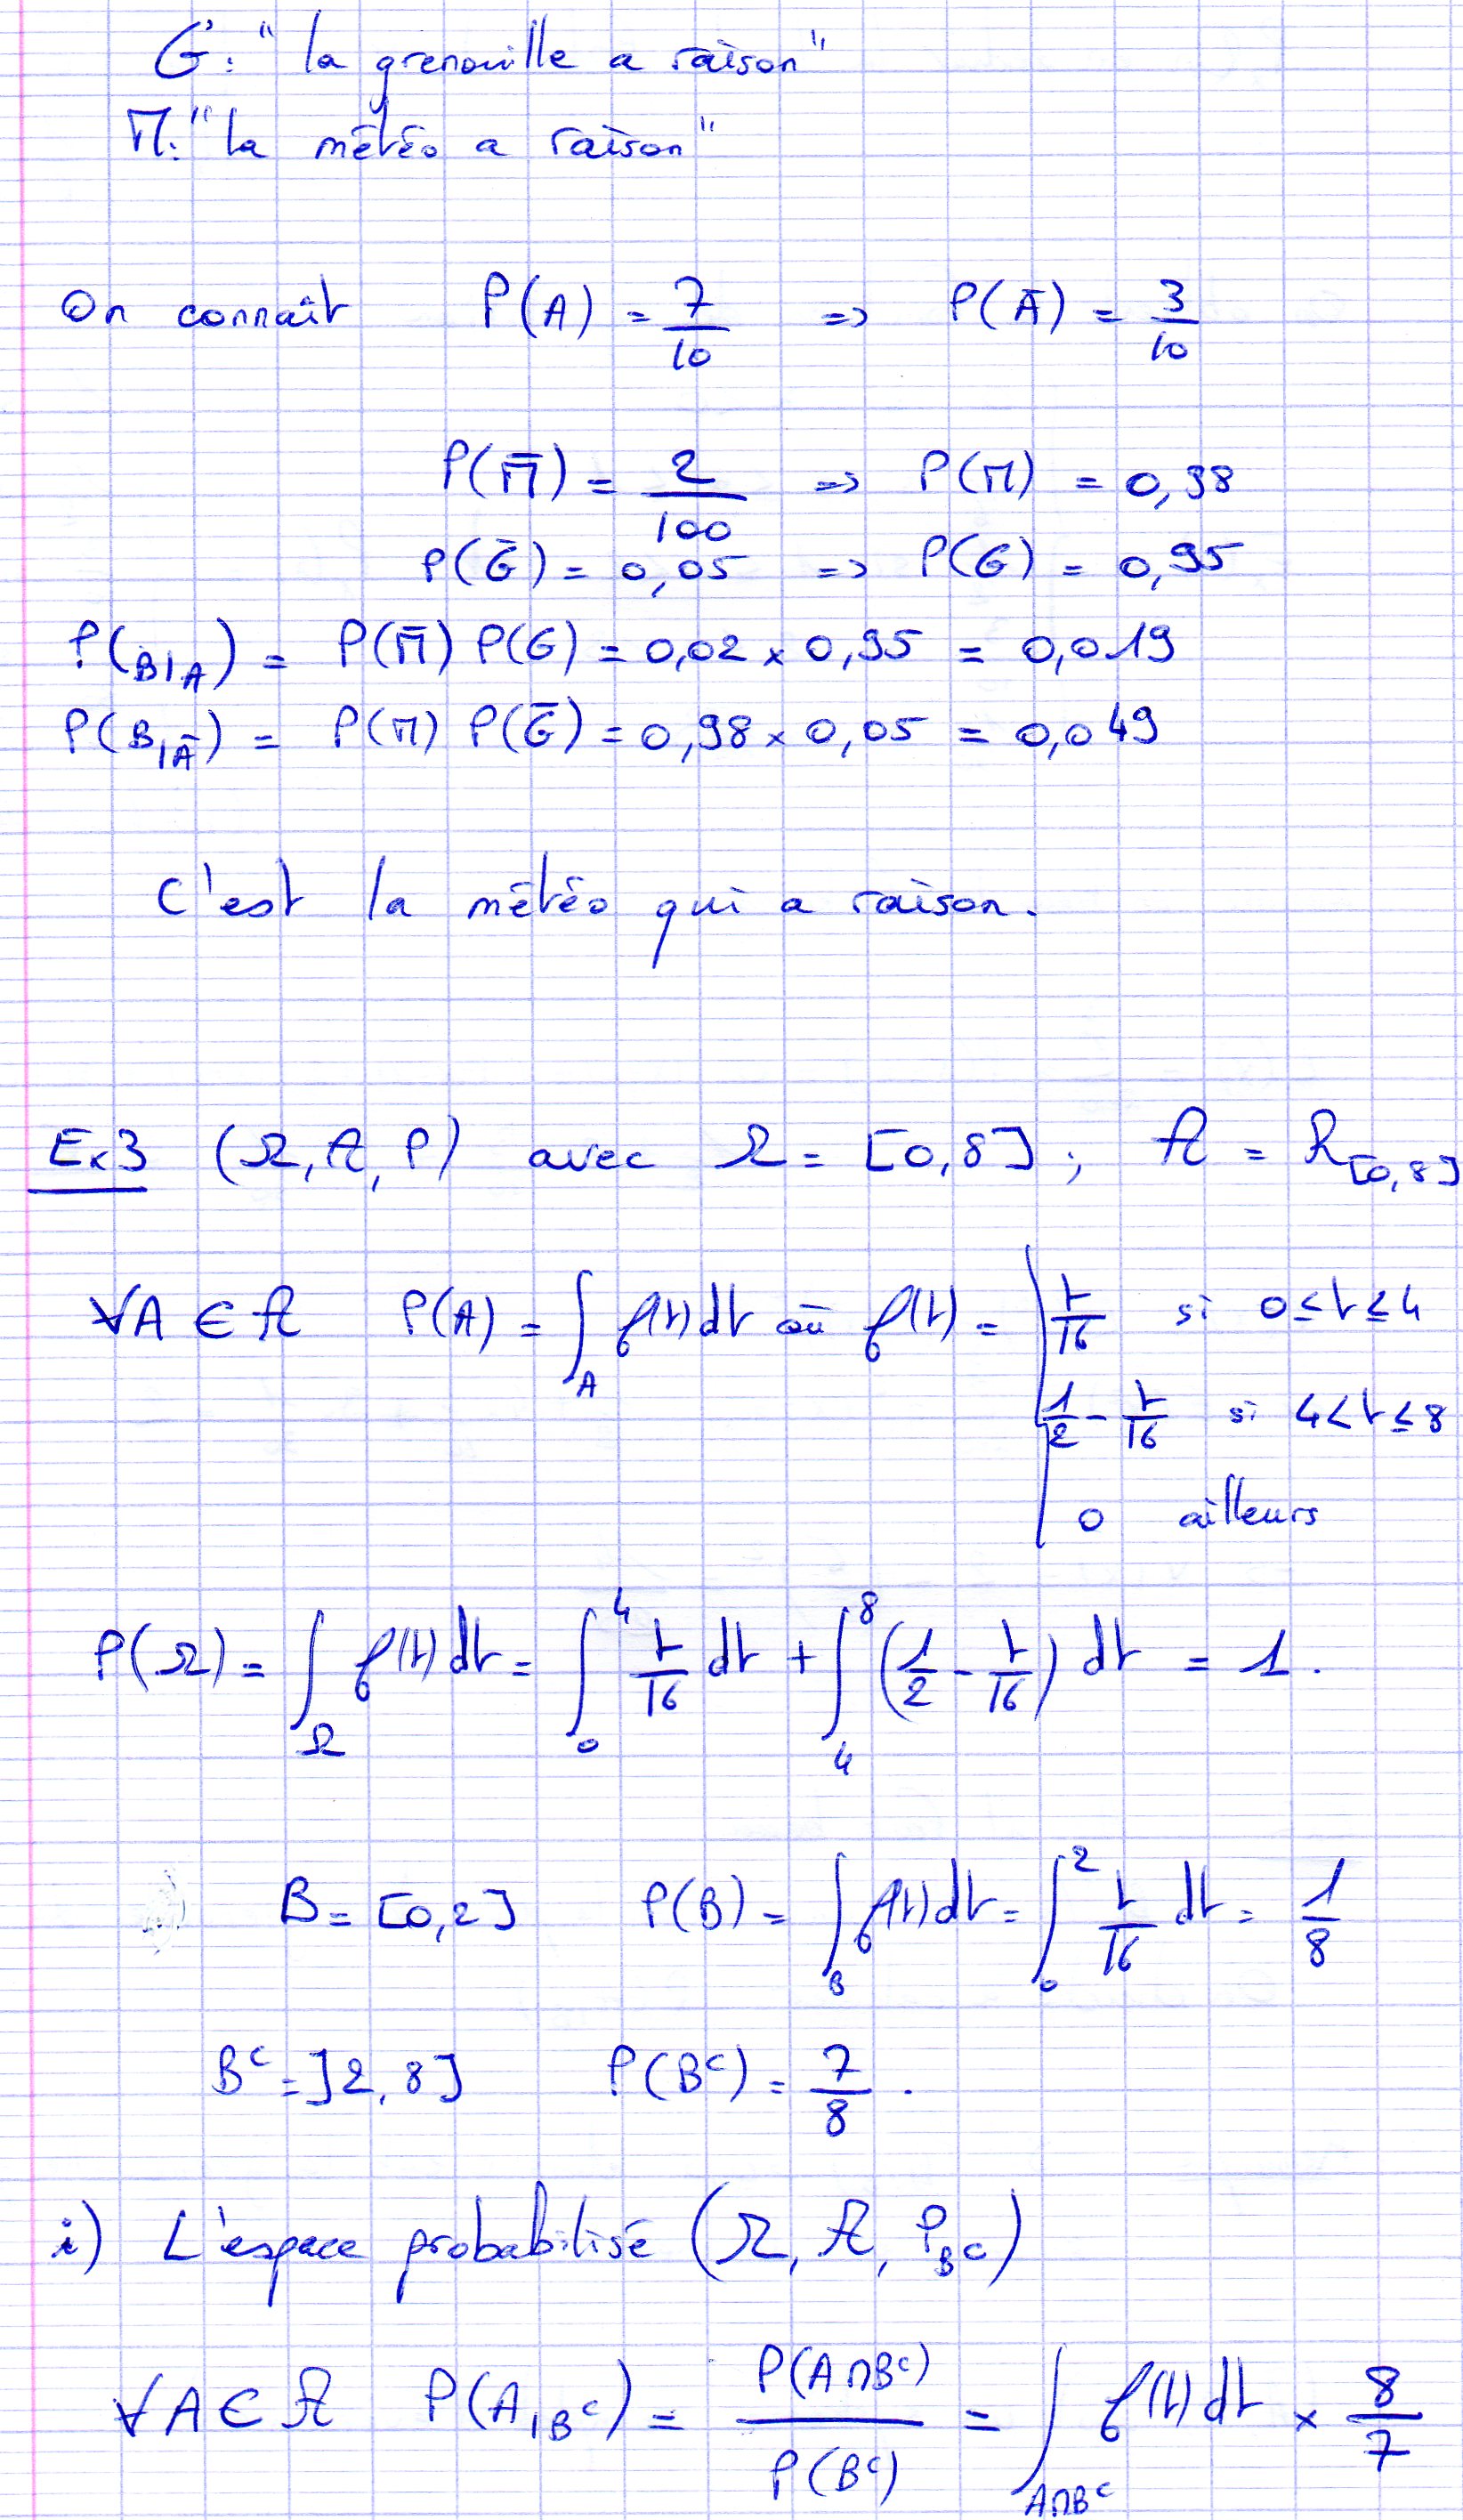 G : "la grenouille a raison"
M : "la météo a raison"
On connaît P(A) = 7/10 => P(Ā) = 3/10
P(M̄) = 2/100 => P(M) = 0,98
P(Ḡ) = 0,05 => P(G) = 0,95
P(B|A) = P(M̄) P(G) = 0,02 × 0,95 = 0,019
P(B|Ā) = P(M) P(Ḡ) = 0,98 × 0,05 = 0,049
C'est la météo qui a raison.
Ex3 (Ω, A, P) avec Ω = [0,8] ; A = R[0,8]
∀A ∈ A P(A) = ∫_A f(t) dt où f(t) = | t/16 si 0 ≤ t ≤ 4
1/2 - t/16 si 4 < t ≤ 8
0 ailleurs
P(Ω) = ∫_Ω f(t) dt = ∫_0^4 t/16 dt + ∫_4^8 (1/2 - t/16) dt = 1.
B = [0,2] P(B) = ∫_B f(t) dt = ∫_0^2 t/16 dt = 1/8
B^c = ]2,8] P(B^c) = 7/8.
i) L'espace probabilisé (Ω, A, P_{B^c})
∀A ∈ A P(A|B^c) = P(A∩B^c)/P(B^c) = ∫_{A∩B^c} f(t) dt × 8/7